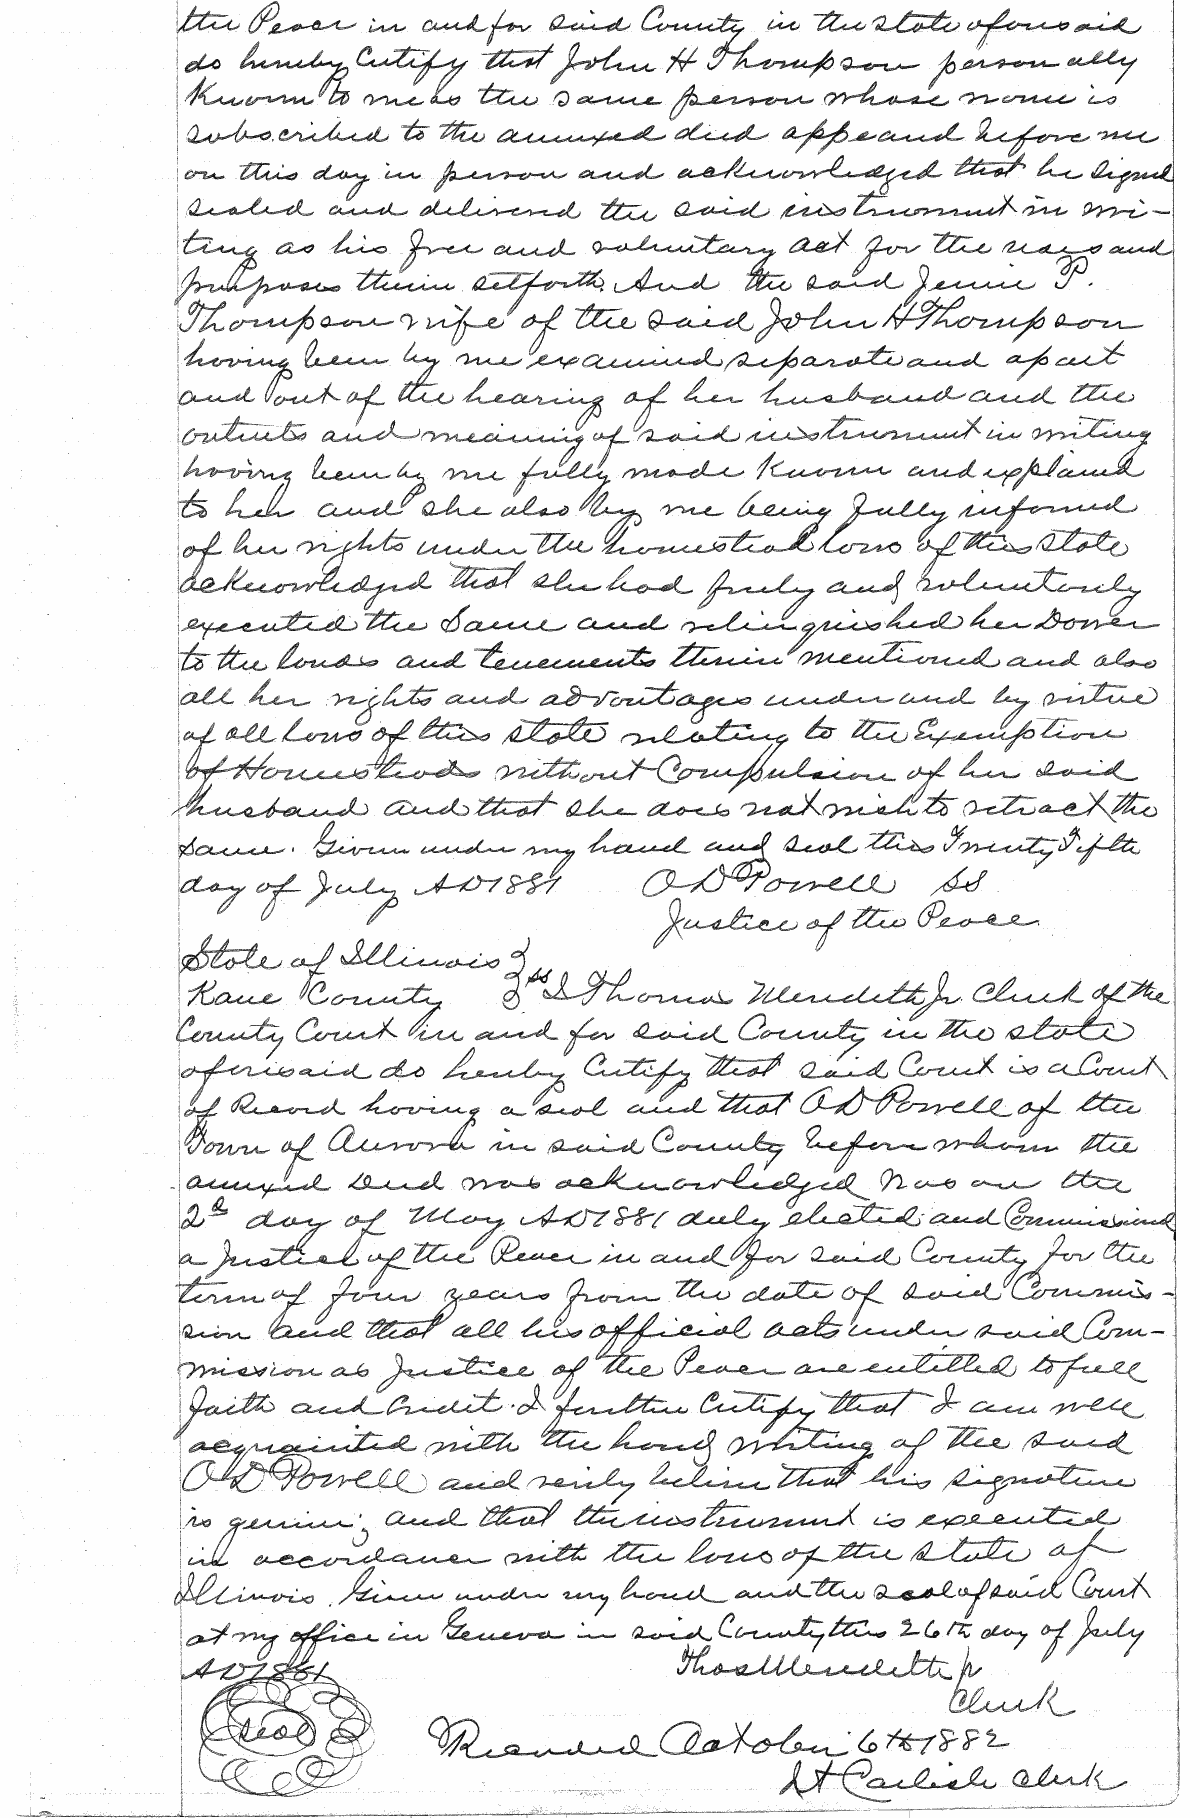 the Peace in and for said County in the state aforesaid
do hereby Certify that John H Thompson personally
Known to me as the same person whose name is
subscribed to the annexed died appeared before me
on this day in person and acknowledged that he signed
sealed and delivered the said instrument in wri-
ting as his free and voluntary act for the uses and
purposes therein set forth. And the said Jennie P.
Thompson wife of the said John H Thompson
having been by me examined separate and apart
and out of the hearing of her husband and the
contents and meaning of said instrument in writing
having been by me fully made Known and explained
to her and she also by me being fully informed
of her rights under the homestead laws of this state
acknowledged that she had freely and voluntarily
executed the Same and relinquished her Dower
to the lands and tenements therein mentioned and also
all her rights and advantages under and by virtue
of all laws of this state relating to the Exemption
of Homesteads without Compulsion of her said
husband and that she does not wish to retract the
same. Given under my hand and seal this Twenty Fifth
day of July AD 1881 O D Powell SS
Justice of the Peace
State of Illinois }
Kane County } ss I Thomas Meredith Jr. Clerk of the
County Court in and for said County in the state
aforesaid do hereby Certify that said Court is a Court
of Record having a seal and that O D Powell of the
Town of Aurora in said County before whom the
annexed Deed was acknowledged was on the
2d day of May AD 1881 duly elected and Commissioned
a Justice of the Peace in and for said County for the
term of four years from the date of said Commis-
sion and that all his official acts under said Com-
mission as Justice of the Peace are entitled to full
faith and Credit. I further Certify that I am well
acquainted with the hand writing of the said
O D Powell and verily believe that his signature
is genuine; and that the instrument is executed
in accordance with the laws of the state of
Illinois. Given under my hand and the seal of said Court
at my office in Geneva in said County this 26th day of July
AD 1881 Thos Meredith Jr
Clerk
seal
Recorded October 6th 1882
Carlisle Clerk